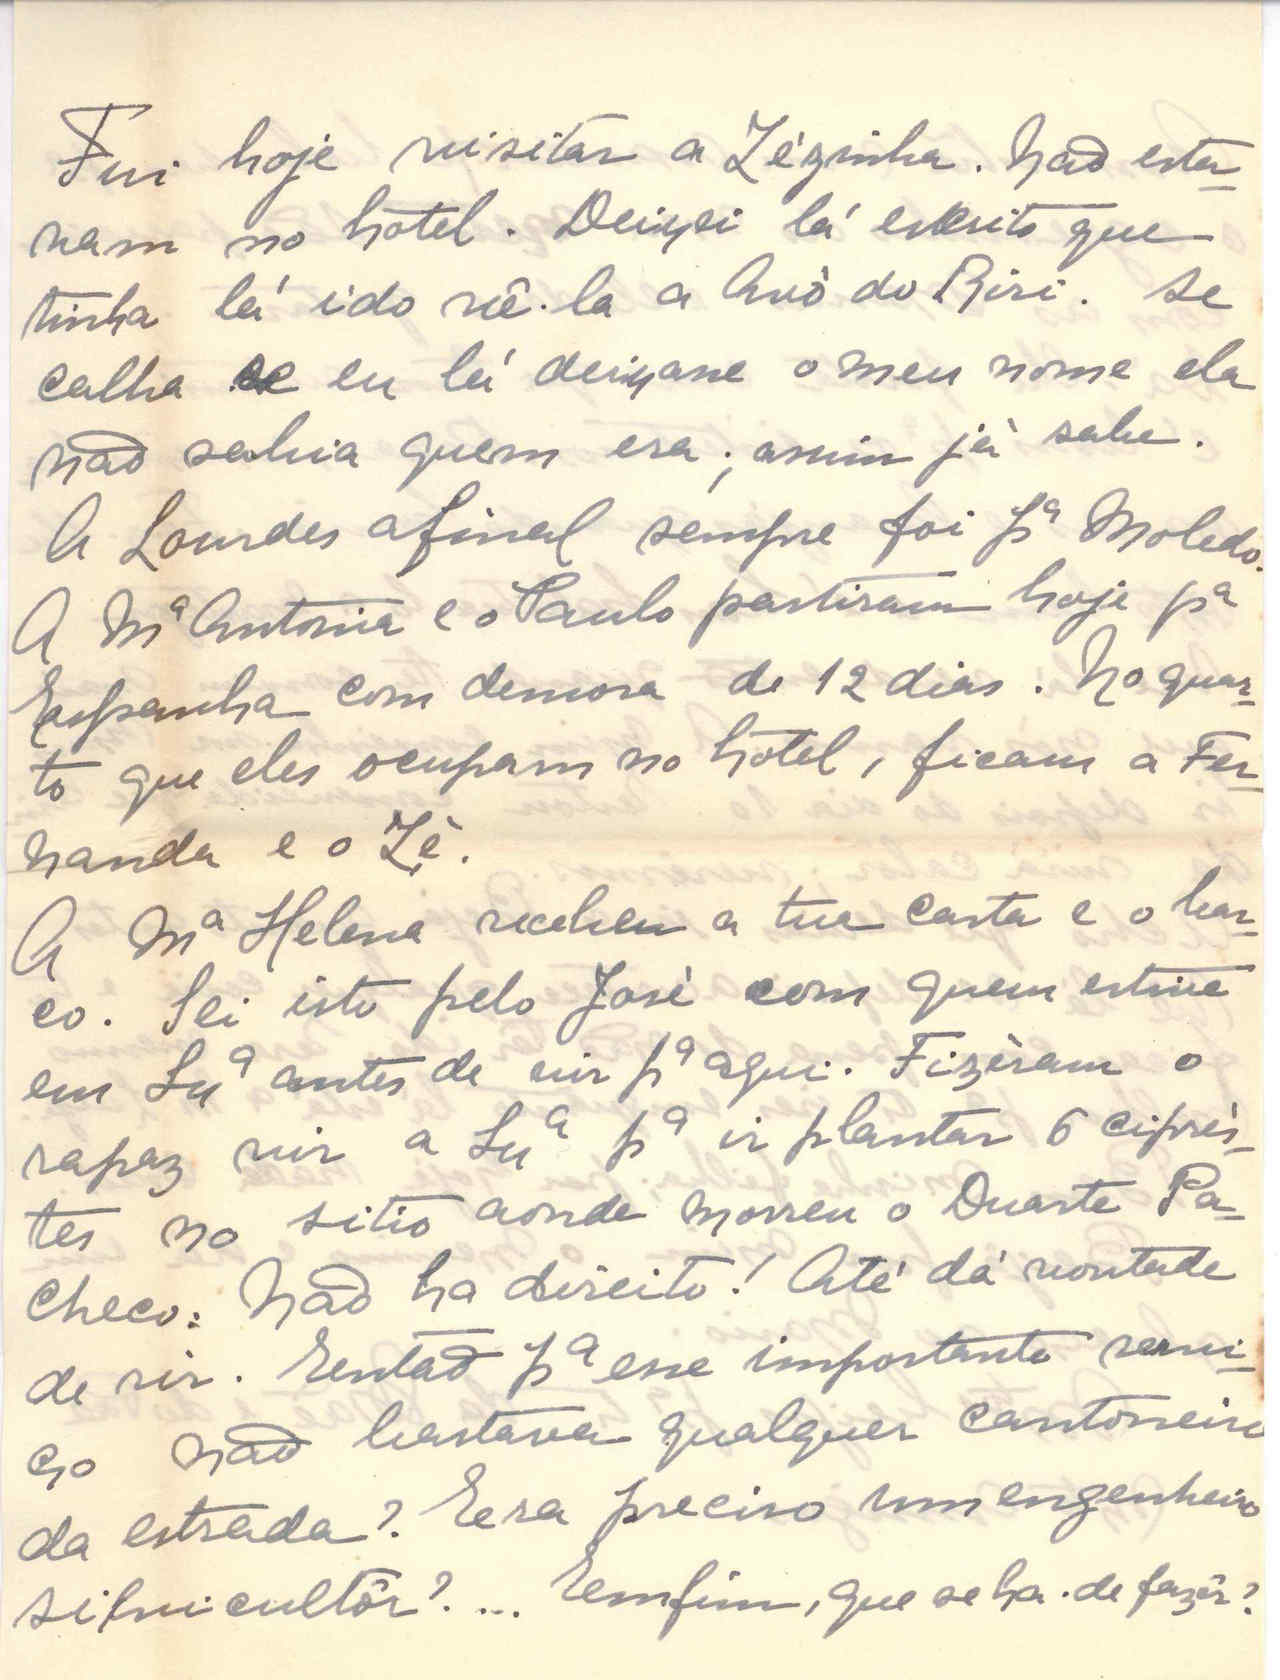 Fui hoje visitar a Zézinha. Não esta-
vam no hotel. Deixei lá escrito que
tinha lá ido vê-la a Avó do Riri. Se
calha se eu lá deixasse o meu nome ela
não sabia quem era; assim já sabe.
A Lourdes afinal sempre foi pª Moledo.
A Mª Antonia e o Paulo partiram hoje pª
Espanha com demora de 12 dias. No quar-
to que eles ocupam no hotel, ficam a Fer-
nanda e o Zé.
A Mª Helena recebeu a tua carta e o bar-
co. Sei isto pelo José com quem estive
em Lxª antes de vir pª aqui. Fizéram o
rapaz vir a Lxª pª ir plantar 6 ciprés-
tes no sitio aonde morreu o Duarte Pa-
checo: Não ha direito! Até dá vontade
de rir. Então pª esse importante servi-
ço não bastava qualquer cantoneiro
da estrada? Era preciso um engenheiro
silvicultôr?... Emfim, que se ha-de fazêr?